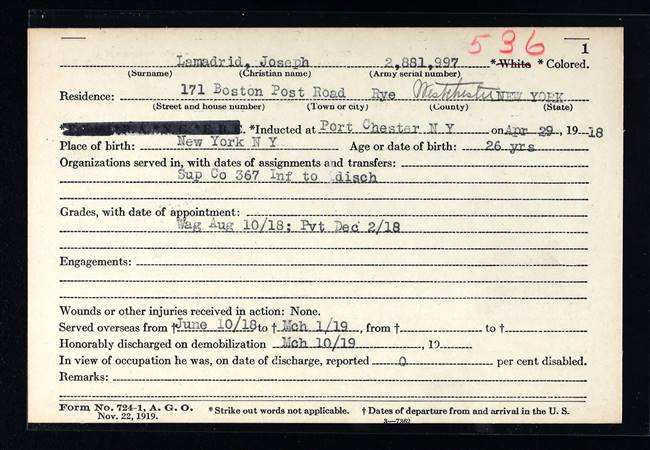 536 1
Lamadrid, Joseph 2,881,997 *White *Colored.
(Surname) (Christian name) (Army serial number)
Residence: 171 Boston Post Road Rye Westchester NEW YORK
(Street and house number) (Town or city) (County) (State)
*Inducted at Port Chester N Y on Apr 29, 19 18
Place of birth: New York N Y Age or date of birth: 26 yrs
Organizations served in, with dates of assignments and transfers:
Sup Co 367 Inf to disch
Grades, with date of appointment:
Wag Aug 10/18: Pvt Dec 2/18
Engagements:
Wounds or other injuries received in action: None.
Served overseas from †June 10/18 to † Mch 1/19, from † to †
Honorably discharged on demobilization Mch 10/19, 19
In view of occupation he was, on date of discharge, reported 0 per cent disabled.
Remarks:
Form No. 724-1, A. G. O. *Strike out words not applicable. †Dates of departure from and arrival in the U. S.
Nov. 22, 1919. 3—7362